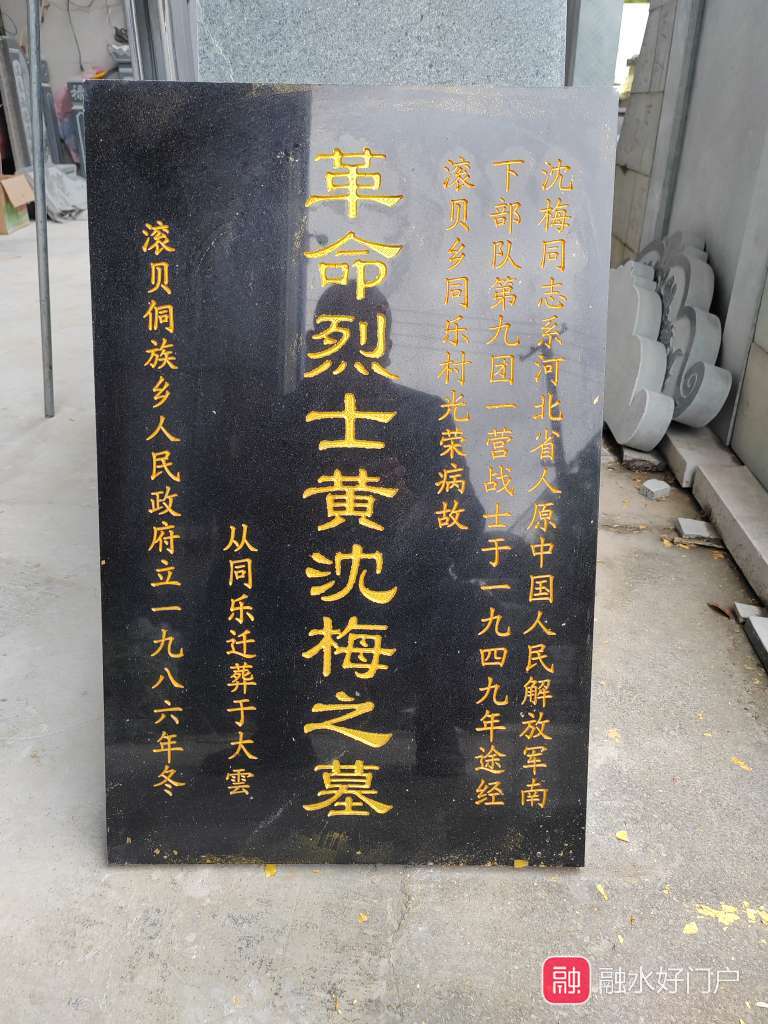 沈梅同志系河北省人原中国人民解放军南
下部队第九团一营战士于一九四九年途经
滚贝乡同乐村光荣病故
革命烈士黄沈梅之墓
从同乐迁葬于大雲
滚贝侗族乡人民政府立一九八六年冬
融 融水好门户